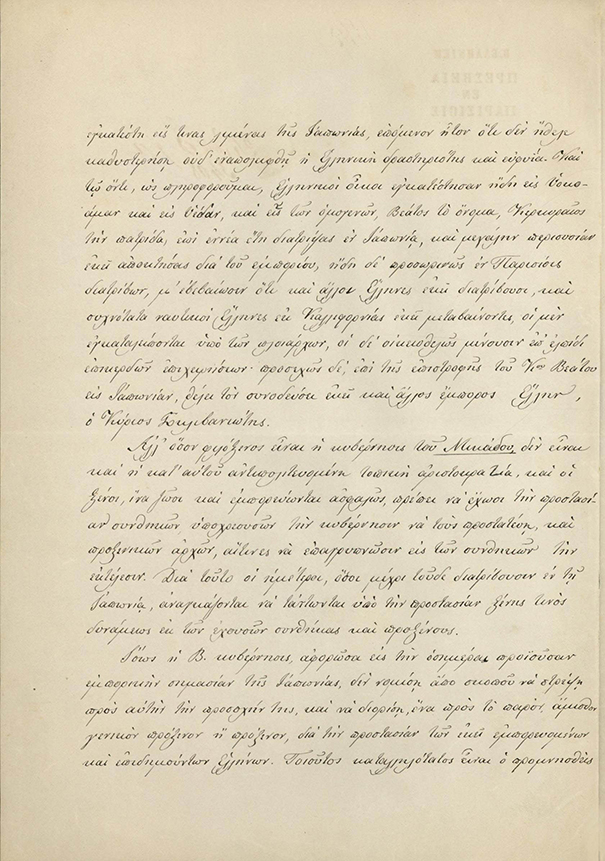 ἐγκατέστη εἴς τινας λιμένας τῆς Ἰαπωνίας, ἑπόμενον ἦτον ὅτι δὲν ἤθελε
καθυστερήσῃ οὐδ' ἐναπολειφθῇ ἡ Ἑλληνικὴ δραστηριότης καὶ εὐφυΐα. Καὶ
τῷ ὄντι, ὡς πληροφοροῦμαι, Ἑλληνικοὶ οἶκοι ἐγκατέστησαν ἤδη εἰς Ὑοκο-
άμαν καὶ εἰς καὶ εἷς τῶν ὁμογενῶν, Βεάτος τὸ ὄνομα, Κερκυραῖος
τὴν πατρίδα, ἐπὶ ἐννέα ἔτη διατρίψας ἐν Ἰαπωνίᾳ, καὶ μεγάλην περιουσίαν
ἐκεῖ ἀποκτήσας διὰ τοῦ ἐμπορίου, ἤδη δὲ προσωρινῶς ἐν Παρισίοις
διατρίβων, μ' ἐβεβαίωσεν ὅτι καὶ ἄλλοι Ἕλληνες ἐκεῖ διατρίβουσι, καὶ
συχνότατα ναυτικοὶ Ἕλληνες ἐκ Καλιφορνίας ἐκεῖ μεταβαίνοντες, οἱ μὲν
ἐγκαταλείπονται ὑπὸ τῶν πλοιάρχων, οἱ δὲ οἰκειοθελῶς μένουσιν ἐπ' ἐλπίδι
ἐπικερδῶν ἐπιχειρήσεων· προσεχῶς δὲ, ἐπὶ τῆς ἐπιστροφῆς τοῦ Κου Βεάτου
εἰς Ἰαπωνίαν, θέλει τὸν συνοδεύσει ἐκεῖ καὶ ἄλλος ἔμπορος Ἕλλην,
ὁ Κύριος
Ἀλλ' ὅσον φιλόξενος εἶναι ἡ κυβέρνησις τοῦ Μικάδου, δὲν εἶναι
καὶ ἡ κατ' αὐτοῦ ἀντιπολιτευομένη τοπικὴ ἀριστοκρατία, καὶ οἱ
ξένοι, ἵνα ζῶσι καὶ ἐμπορεύωνται ἀσφαλῶς, πρέπει νὰ ἔχωσι τὴν προστασί-
αν συνθηκῶν, ὑποχρεουσῶν τὴν κυβέρνησιν νὰ τοὺς προστατεύῃ, καὶ
προξενικῶν ἀρχῶν, αἵτινες νὰ ἐπαγρυπνῶσιν εἰς τῶν συνθηκῶν τὴν
ἐκτέλεσιν. Διὰ τοῦτο οἱ ἡμέτεροι, ὅσοι μέχρι τοῦδε διατρίβουσιν ἐν τῇ
Ἰαπωνίᾳ, ἀναγκάζονται νὰ τάττωνται ὑπὸ τὴν προστασίαν ξένης τινὸς
δυνάμεως ἐκ τῶν ἐχουσῶν συνθήκας καὶ προξένους.
Ἴσως ἡ Β. κυβέρνησις, ἀφορῶσα εἰς τὴν ὁσημέραι προϊοῦσαν
ἐμπορικὴν σημασίαν τῆς Ἰαπωνίας, δὲν νομίσῃ ἄπο σκοποῦ νὰ στρέψῃ
πρὸς αὐτὴν τὴν προσοχήν της, καὶ νὰ διορίσῃ, ἕνα πρὸς τὸ παρὸν, ἄμισθον
γενικὸν πρόξενον ἢ πρόξενον, διὰ τὴν προστασίαν τῶν ἐκεῖ ἐμπορευομένων
καὶ ἐπιδημούντων Ἑλλήνων. Τοιοῦτος καταλληλότατος εἶναι ὁ προμνησθεὶς